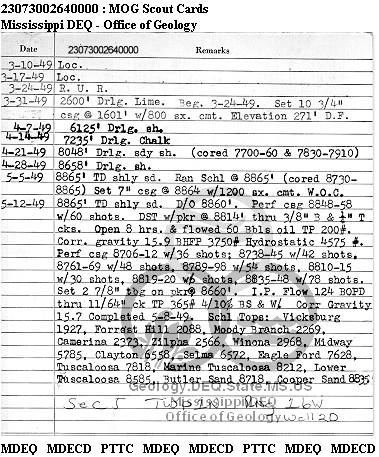 23073002640000 : MOG Scout Cards
Mississippi DEQ - Office of Geology
Date 23073002640000 Remarks
3-10-49 Loc.
3-17-49 Loc.
3-24-49 R. U. R.
3-31-49 2600' Drlg. Lime. Beg. 3-24-49. Set 10 3/4"
csg @ 1601' w/800 sx. cmt. Elevation 271' D.F.
4-7-49 6125' Drlg. sh.
4-14-49 7235' Drlg. Chalk
4-21-49 8048' Drlg. sdy sh. (cored 7700-60 & 7830-7910)
4-28-49 8658' Drlg. sh.
5-5-49 8865' TD shly sd. Ran Schl @ 8865' (cored 8730-
8865) Set 7" csg @ 8864 w/1200 sx. cmt. W.O.C.
5-12-49 8865' TD shly sd. D/O 8860'. Perf csg 8848-58
w/60 shots. DST w/pkr @ 8814' thru 3/8" B & ¼" T
cks. Open 8 hrs. & flowed 60 Bbls oil TP 200#.
Corr. gravity 15.9 BHFP 3750# Hydrostatic 4575 #.
Perf csg 8706-12 w/36 shots; 8738-45 w/42 shots.
8761-69 w/48 shots, 8789-98 w/54 shots, 8810-15
w/30 shots, 8819-20 w/6 shots, 8835-48 w/78 shots.
Set 2 7/8" tbg on pkr @ 8660'. I.P. Flow 124 BOPD
thru 11/64" ck TP 365# 4/10% BS & W. Corr Gravity
15.7 Completed 5-8-49. Schl Tops: Vicksburg
1927, Forrest Hill 2088, Moody Branch 2269,
Camerina 2373, Zilpha 2566, Winona 2968, Midway
5785, Clayton 6558, Selma 6572, Eagle Ford 7628,
Tuscaloosa 7818, Marine Tuscaloosa 8212, Lower
Tuscaloosa 8585, Butler Sand 8718, Cooper Sand 8835
Geology.DEQ.State.MS.US
Sec 5 16W
Mississippi DEQ
Office of Geology
MDEQ MDECD PTTC MDEQ MDECD PTTC MDEQ MDECD